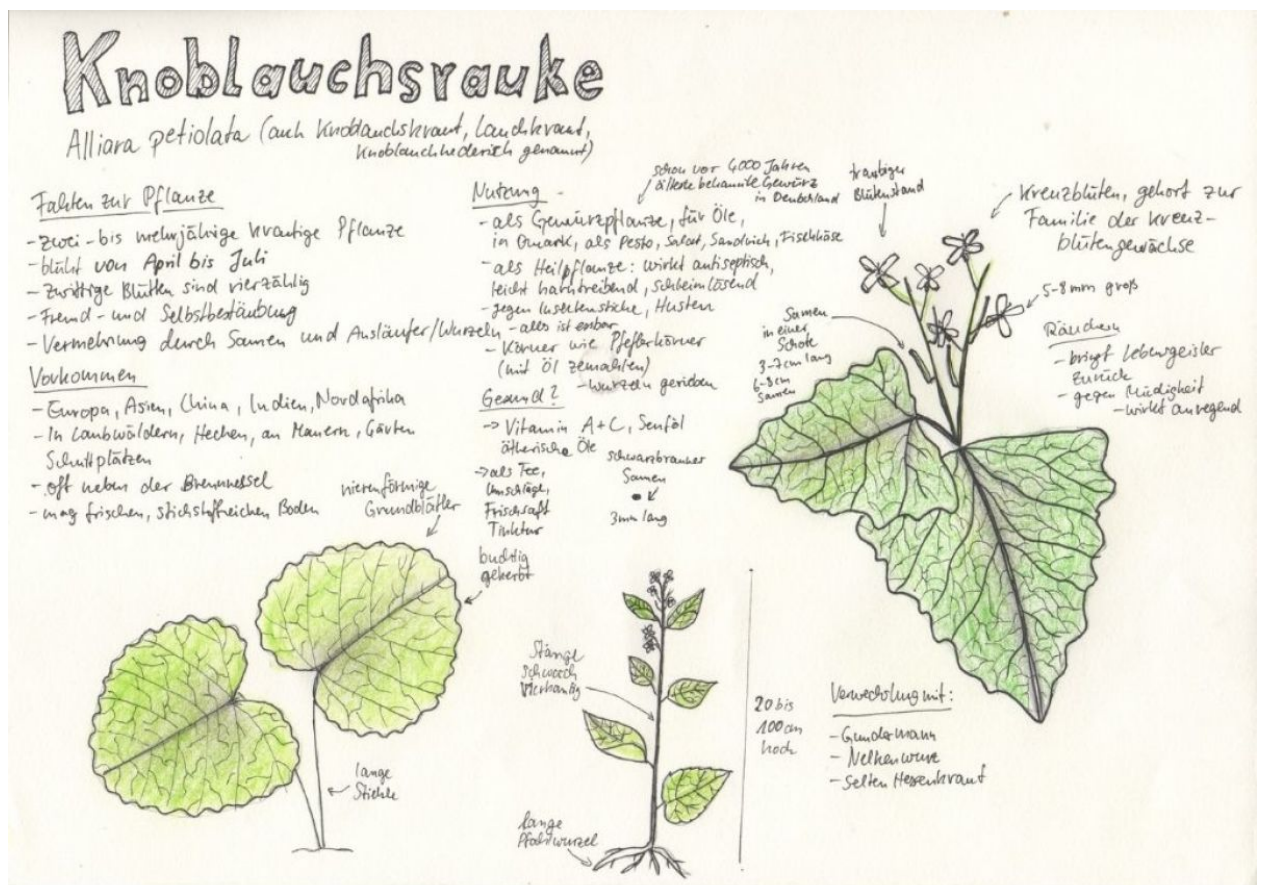 Knoblauchsrauke
Alliara petiolata (auch Knoblauchskraut, Lauchkraut,
Knoblauchhederich genannt)
Fakten zur Pflanze
- zwei- bis mehrjährige krautige Pflanze
- blüht von April bis Juli
- Zwittige Blüten sind vierzählig
- Fremd- und Selbstbestäubung
- Vermehrung durch Samen und Ausläufer/Wurzeln
Vorkommen
- Europa, Asien, China, Indien, Nordafrika
- In Laubwäldern, Hecken, an Mauern, Gärten
Schuttplätzen
- oft neben der Brennnessel
- mag frischen, stickstoffreichen Boden
nierenförmige
Grundblätter
buchtig
gekerbt
lange
Stiehle
Nutzung -
schon vor 4000 Jahren
älteste bekannte Gewürz
in Deutschland
- als Gewürzpflanze, für Öle,
in Quark, als Pesto, Salat, Sandwich, Frischkäse
- als Heilpflanze: wirkt antiseptisch,
leicht harntreibend, schleimlösend
- gegen Insektenstiche, Husten
- alles ist essbar
- Körner wie Pfefferkörner
(mit Öl zermahlen)
- Wurzeln gerieben
Gesund?
-> Vitamin A+C, Senföl
ätherische Öle
-> als Tee,
Umschläge,
Frischsaft
Tinktur
schwarzbrauner
Samen
3mm lang
Stängel
schwach
Vierkantig
lange
Pfahlwurzel
20 bis
100cm
hoch
traubiger
Blütenstand
Kreuzblüten, gehört zur
Familie der Kreuz-
blütengewächse
5-8mm groß
Samen
in einer
Schote
3-7cm lang
6-8
Samen
Räuchern
- bringt Lebensgeister
zurück
- gegen Müdigkeit
- wirkt anregend
Verwechslung mit:
- Gundermann
- Nelkenwurz
- Selten Hexenkraut